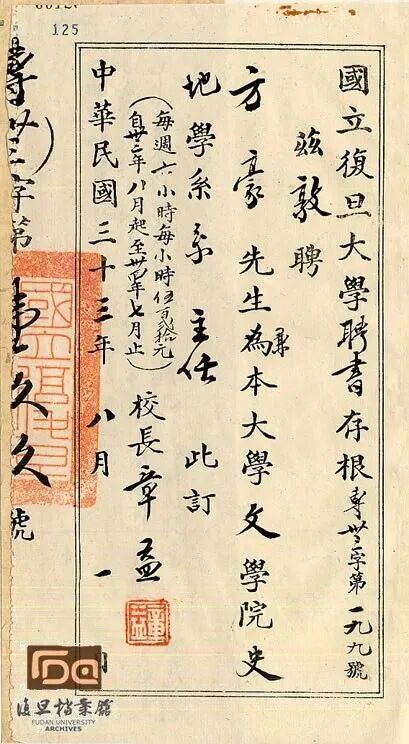 125
國立復旦大學聘書存根專卅三字第一九九號
茲敦聘
方豪先生為本大學文學院史
兼
地學系系主任 此訂
(每週六小時每小時伍百貳拾元
自卅三年八月起至卅四年七月止)
校長章益
章益
中華民國三十三年八月一日
專卅三字第壹久久號
復旦檔案館
FUDAN UNIVERSITY
ARCHIVES